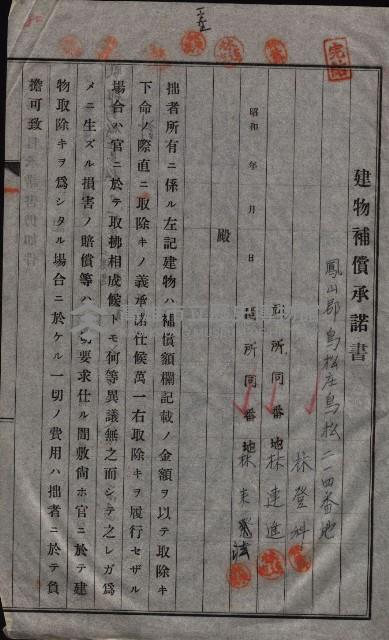 建物補償承諾書
鳳山郡鳥松庄鳥松二一四番地
林登科
同所同番地林連進
同所同番地林朱法
昭和年月日
殿
拙者所有ニ係ル左記建物ハ補償額欄記載ノ金額ヲ以テ取除キ
下命ノ際直ニ取除キノ義承諾仕候萬一右取除キヲ履行セザル
場合ハ官ニ於テ取拂相成候トモ何等異議無之而シテ之レガ爲
メニ生ズル損害ノ賠償等ハ一切要求仕ル間敷尙ホ官ニ於テ建
物取除キヲ爲シタル場合ニ於ケル一切ノ費用ハ拙者ニ於テ負
擔可致